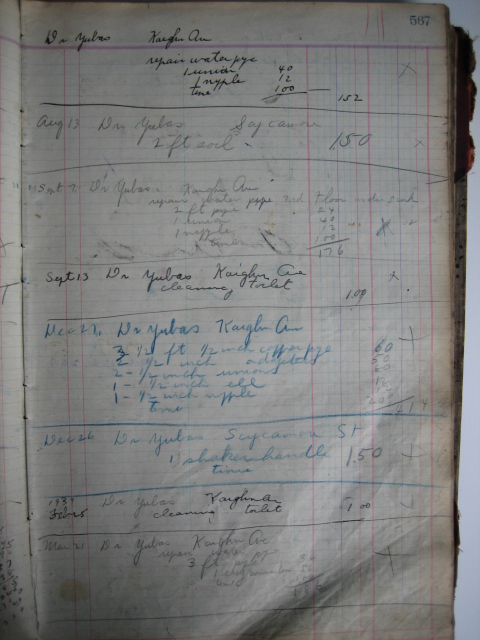 567
Dr Yubas Kaighn Av
repair water pype
1 union 40
1 nypple 12
time 100
152
Aug 13 Dr Yubas Sycamore
2 ft soil 150
Sept 7 Dr Yubas Kaighn Ave
repair water pype 3rd Floor under sink
2 ft pype 24
1 union 40
1 nypple 12
100
176
Sept 13 Dr Yubas Kaighn Ave
cleaning toilet 1.00
Dec 23 Dr Yubas Kaighn Av
3 1/2 ft 1/2 inch copper pype 60
2 1/2 inch adapters 50
2 - 1/2 inch unions
1 - 1/2 inch ell
1 - 1/2 inch nypple
time
Dec 26 Dr Yubas Scycamoa St
1 shaker handle 1.50
time
1939
Feb 25 Dr Yubas Kaighn Av
cleaning toilet 1 00
Mar 21 Dr Yubas Kaighn Ave
repair water
3 ft pype